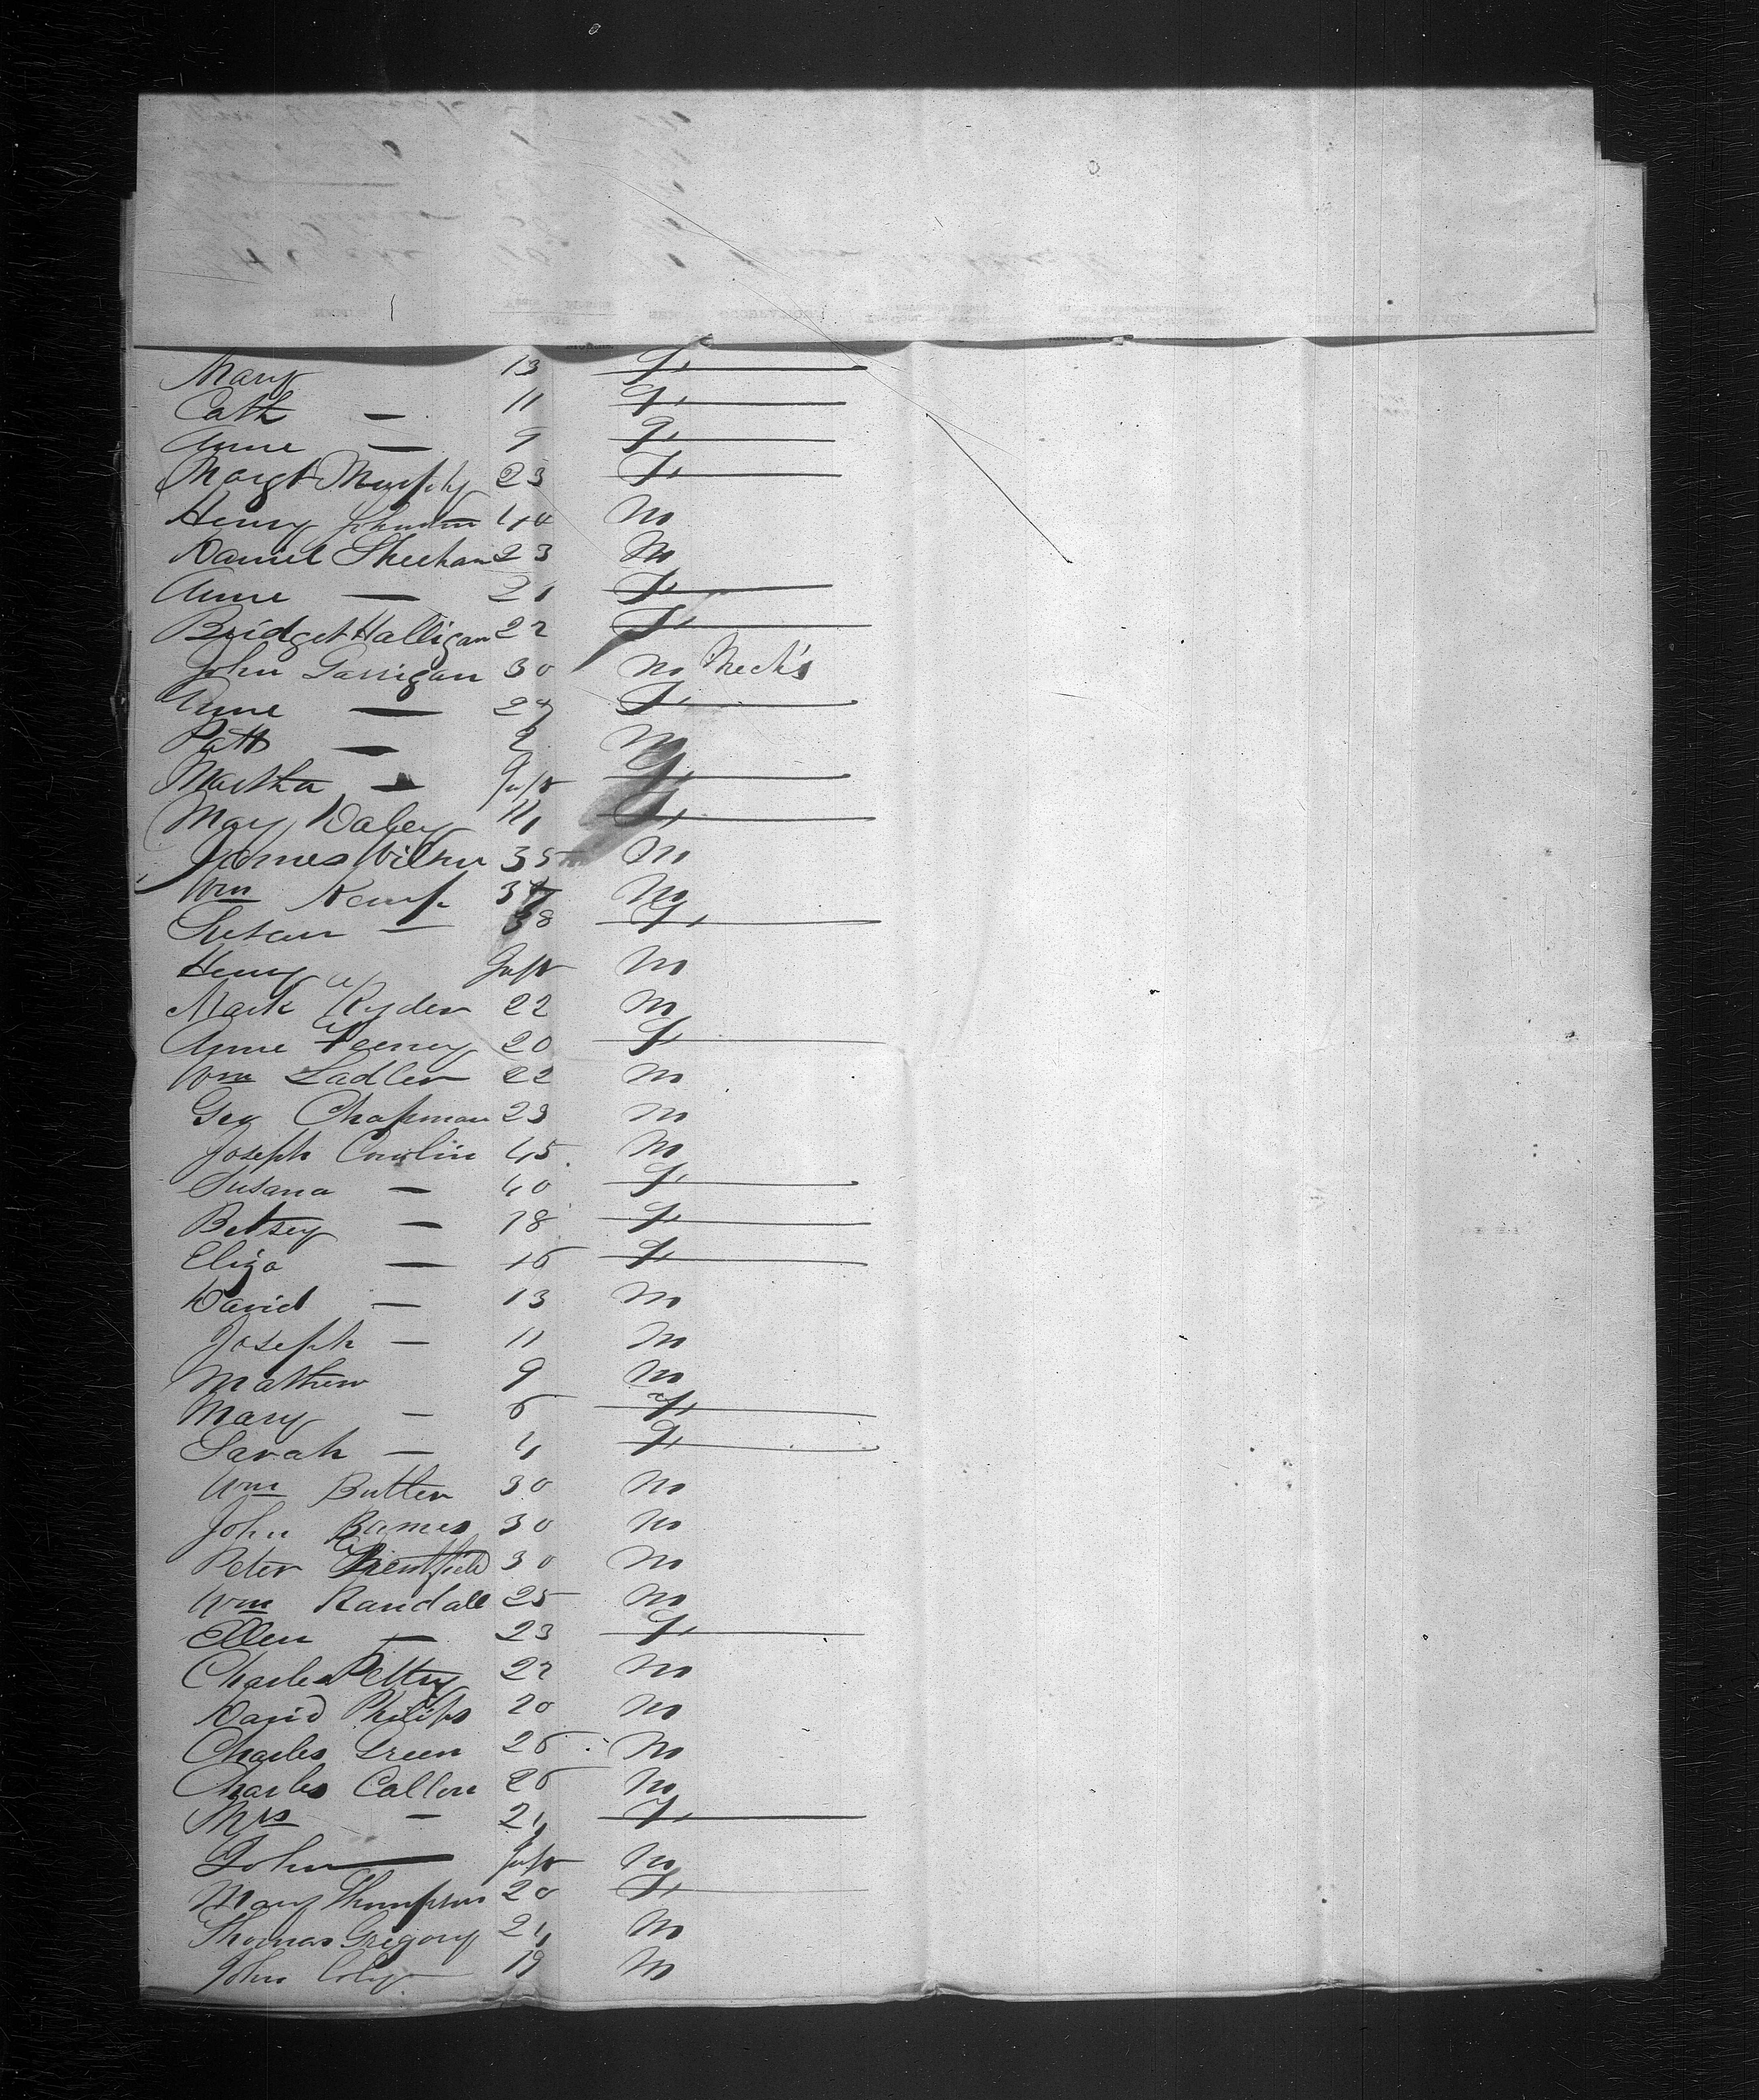 Mary 13 F
Cath — 11 F
Anne — 9 F
Margt Murphy 23 F
Henry Johnson 44 M
Daniel Sheehan 23 M
Anne — 21 F
Bridget Halligan 22 F
John Garrigan 30 M Mech's
Anne — 27 F
Patt — 2 M
Martha — Inft F
Mary Daley 11 F
James 35 M
Wm Kemp M
Susan — 38 F
Henry Inft M
Mark Ryder 22 M
Anne Feeney 20 F
Wm Sadler 22 M
Geo Chapman 23 M
Joseph Cowlin 45 M
Susana — 40 F
Betsey — 18 F
Eliza — 16 F
David — 13 M
Joseph — 11 M
Mathew 9 M
Mary — 6 F
Sarah — 4 F
Wm Butler 30 M
John Barnes 30 M
Peter 30 M
Wm Randall 25 M
Ellen — 23 F
Charles Petty 22 M
David Philips 20 M
Charles Green 26 M
Charles Callow 26 M
Mrs — 24 F
John — Inft M
Mary Thompson 20 F
Thomas Gregory 24 M
John 19 M